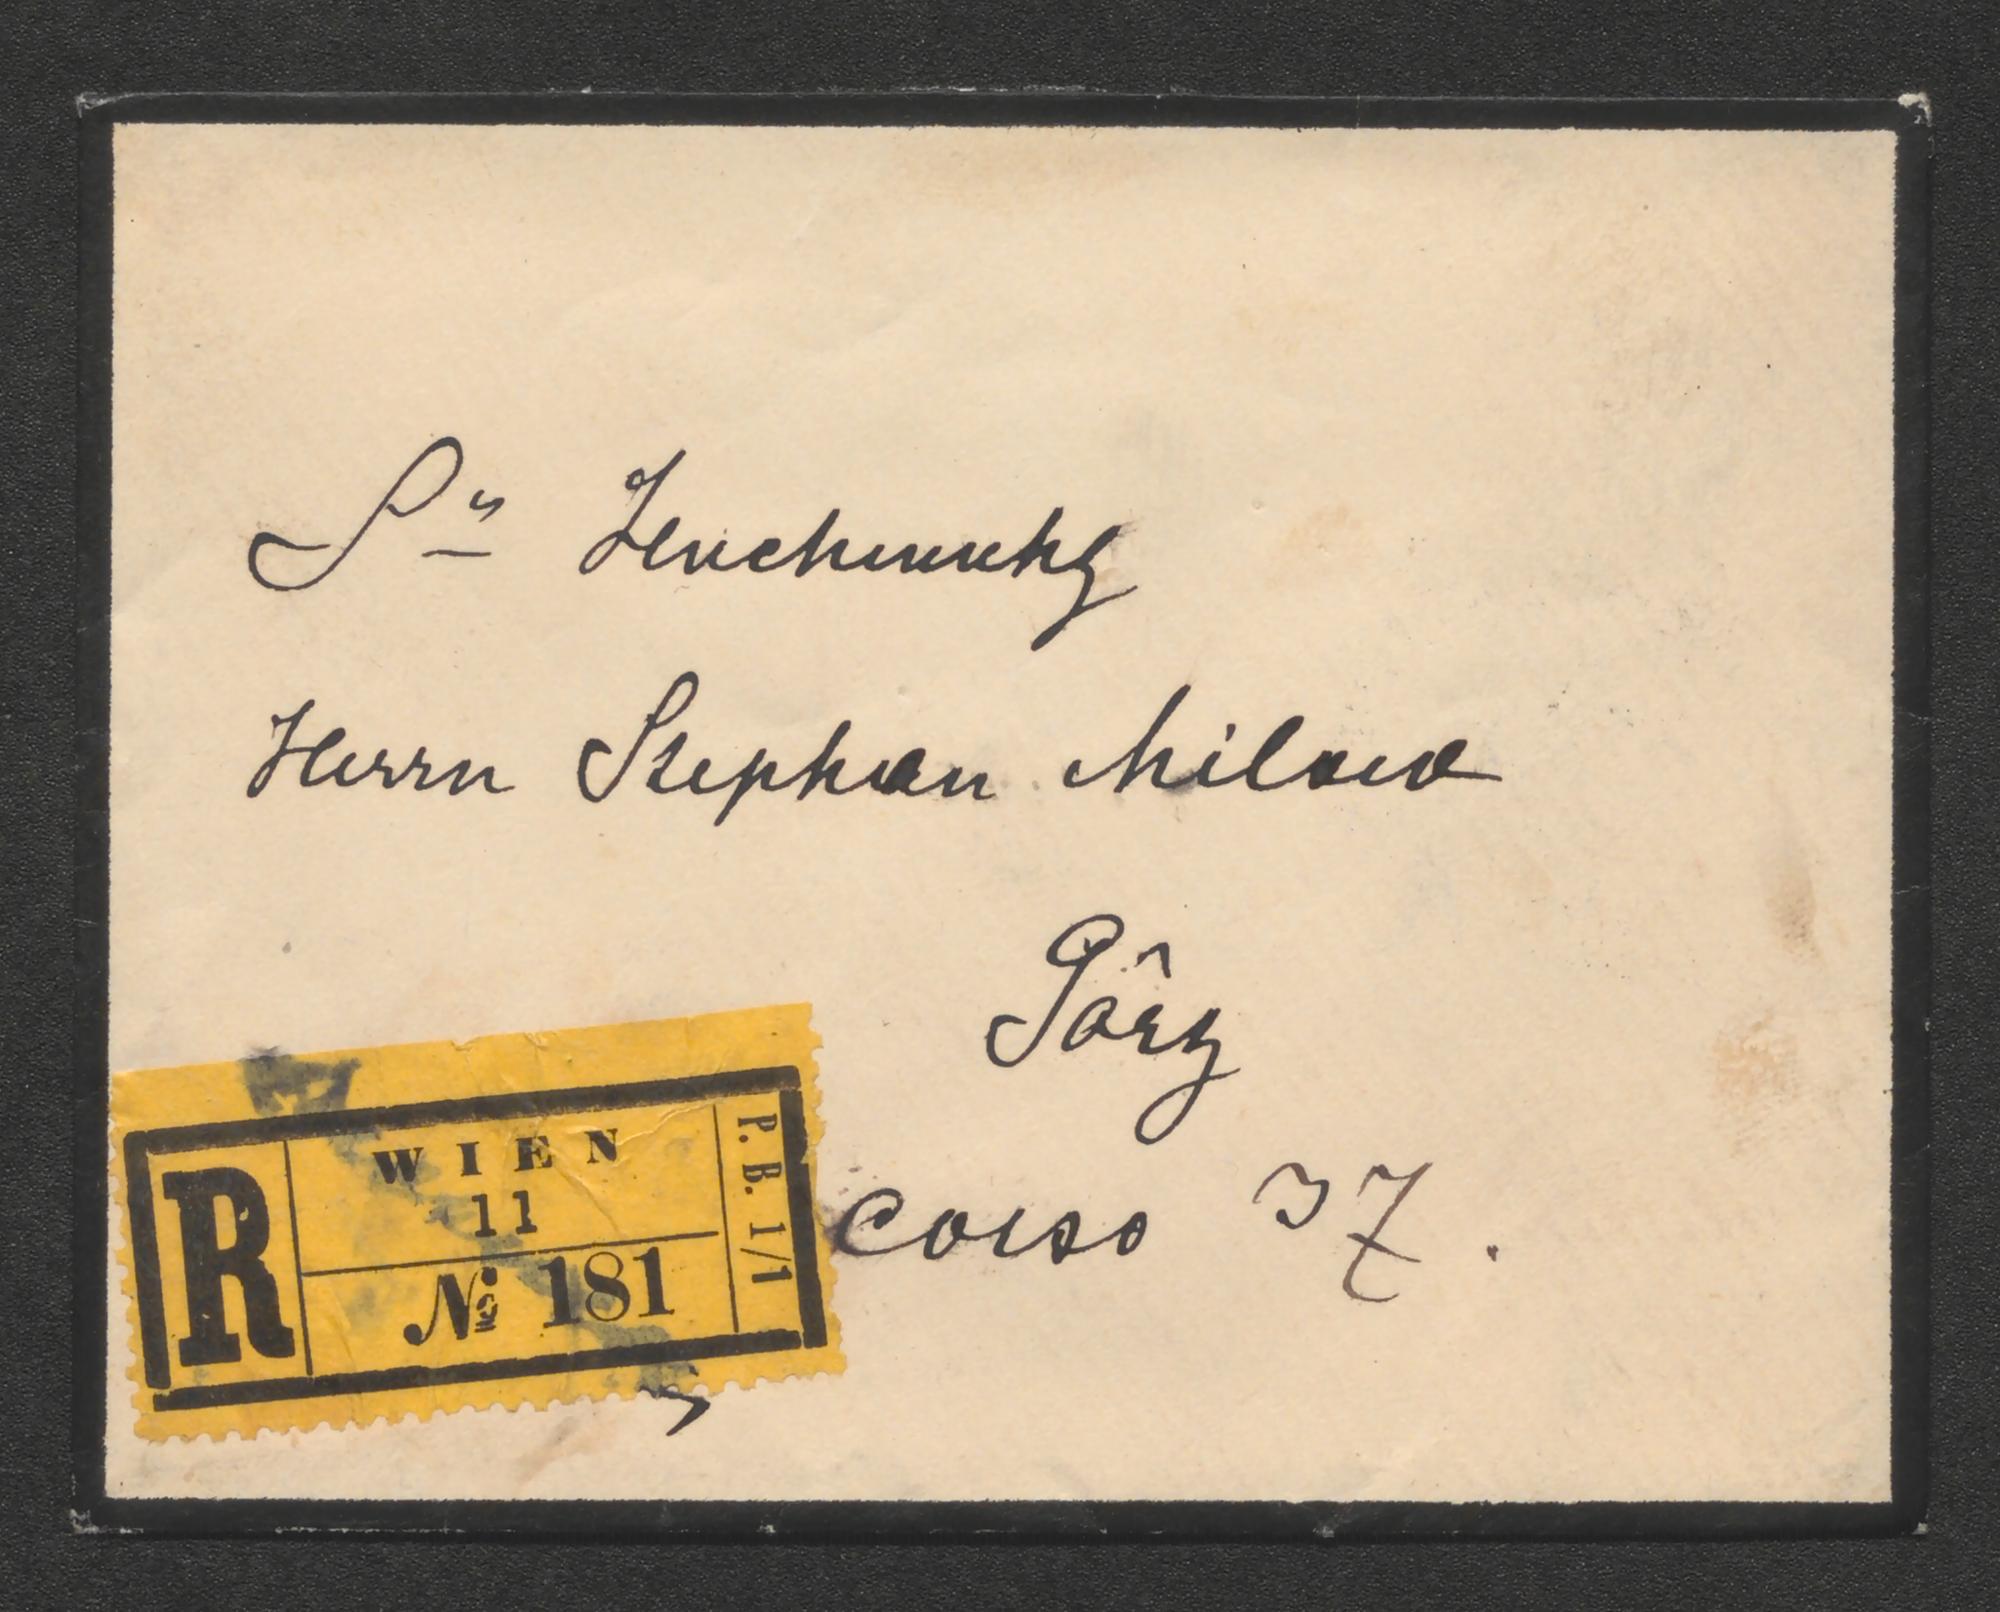 Sr Hochwohlg
Herrn Stephan Milow
Görz
Corso 37.
R
WIEN
11
№ 181
P. B. 1/1